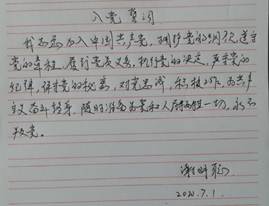 入党誓词
我志愿加入中国共产党，拥护党的纲领，遵守
党的章程，履行党员义务，执行党的决定，严守党的
纪律，保守党的秘密，对党忠诚，积极工作，为共产
主义奋斗终身，随时准备为党和人民牺牲一切，永不
叛党。
2020.7.1